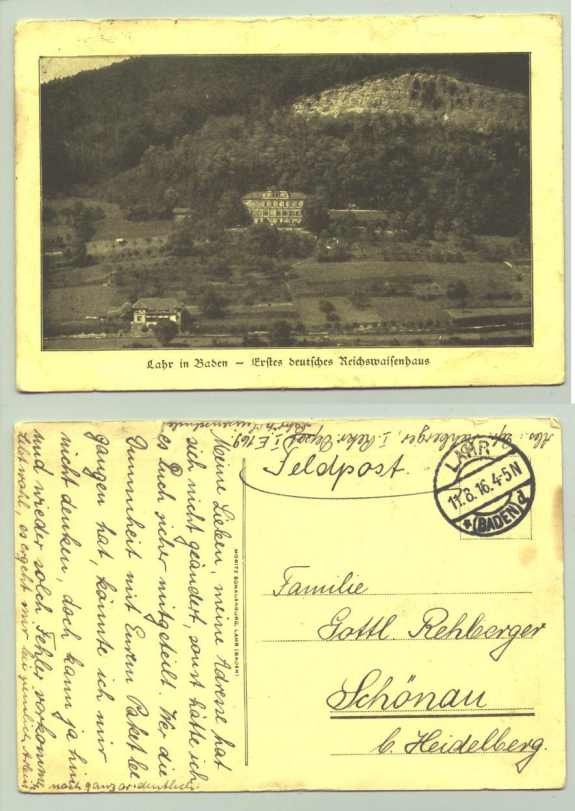 Lahr in Baden – Erstes deutsches Reichswaisenhaus
Abs.: Rehberger, I. Rekr. Depot I. E. 169.
Feldpost.
LAHR
11.8.16.4-5N
* (BADEN) d
Familie
Gottl. Rehberger
Schönau
b. Heidelberg.
MORITZ SCHAUENBURG, LAHR (BADEN)
Meine Lieben, meine Adresse hat
sich nicht geändert, sonst hätte ich
es Euch sicher mitgeteilt. Wer die
Dummheit mit Eurem Paket be
gangen hat, könnte ich mir
nicht denken, doch kann ja hin
und wieder solch Fehler vorkommen
Lebt wohl, es ergeht mir bei ziemlich
noch ganz ordentlich.